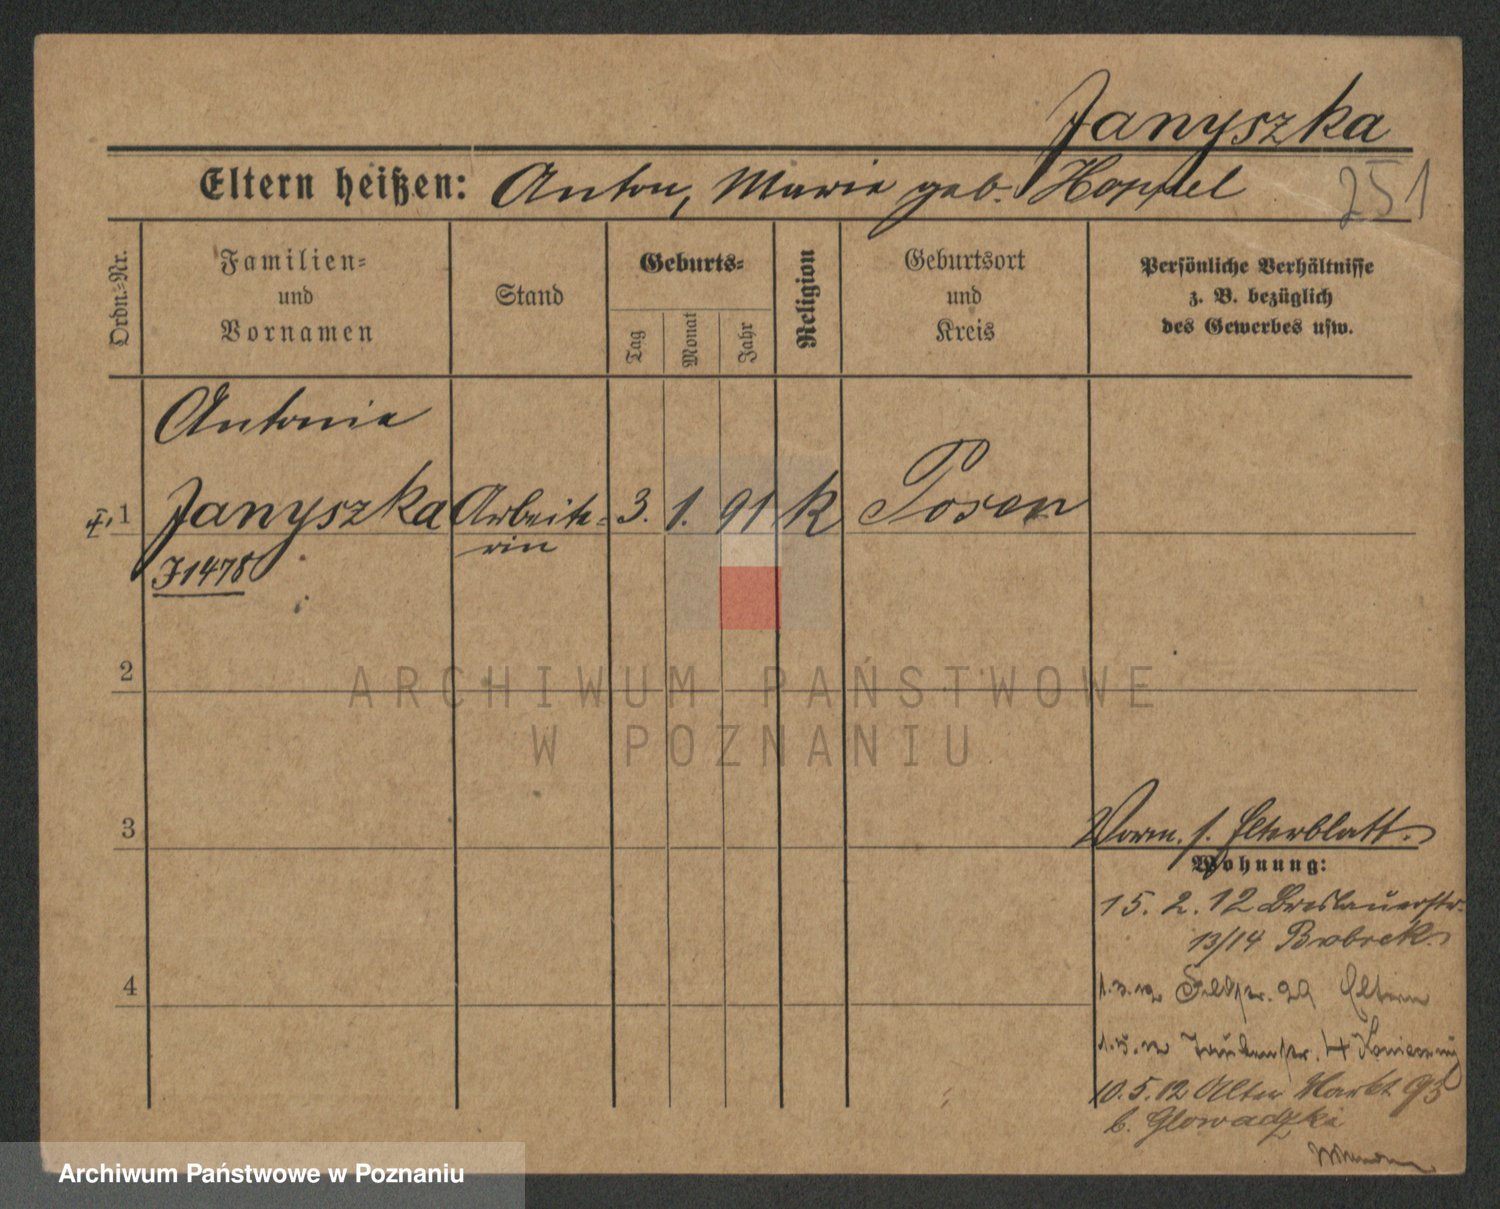 Janyszka
Eltern heißen: Anton, Marie geb. Hoppel
251
Ordn.-Nr.
Familien-
und
Vornamen
Stand
Geburts-
Tag
Monat
Jahr
Religion
Geburtsort
und
Kreis
Persönliche Verhältnisse
z. B. bezüglich
des Gewerbes usw.
Antonie
1 Janyszka Arbeite- 3. 1. 91 k Posen
rin
J1478
2
ARCHIWUM PAŃSTWOWE
W POZNANIU
3
Vorm. s. Elternblatt.
Wohnung:
15. 2. 12 Breslauerstr.
13/14 Bobrek
4
1.3.12 Feldstr. 29 Eltern
1.5.12 4
10.5.12 Alter Markt 95
b. Glowadzki
Archiwum Państwowe w Poznaniu